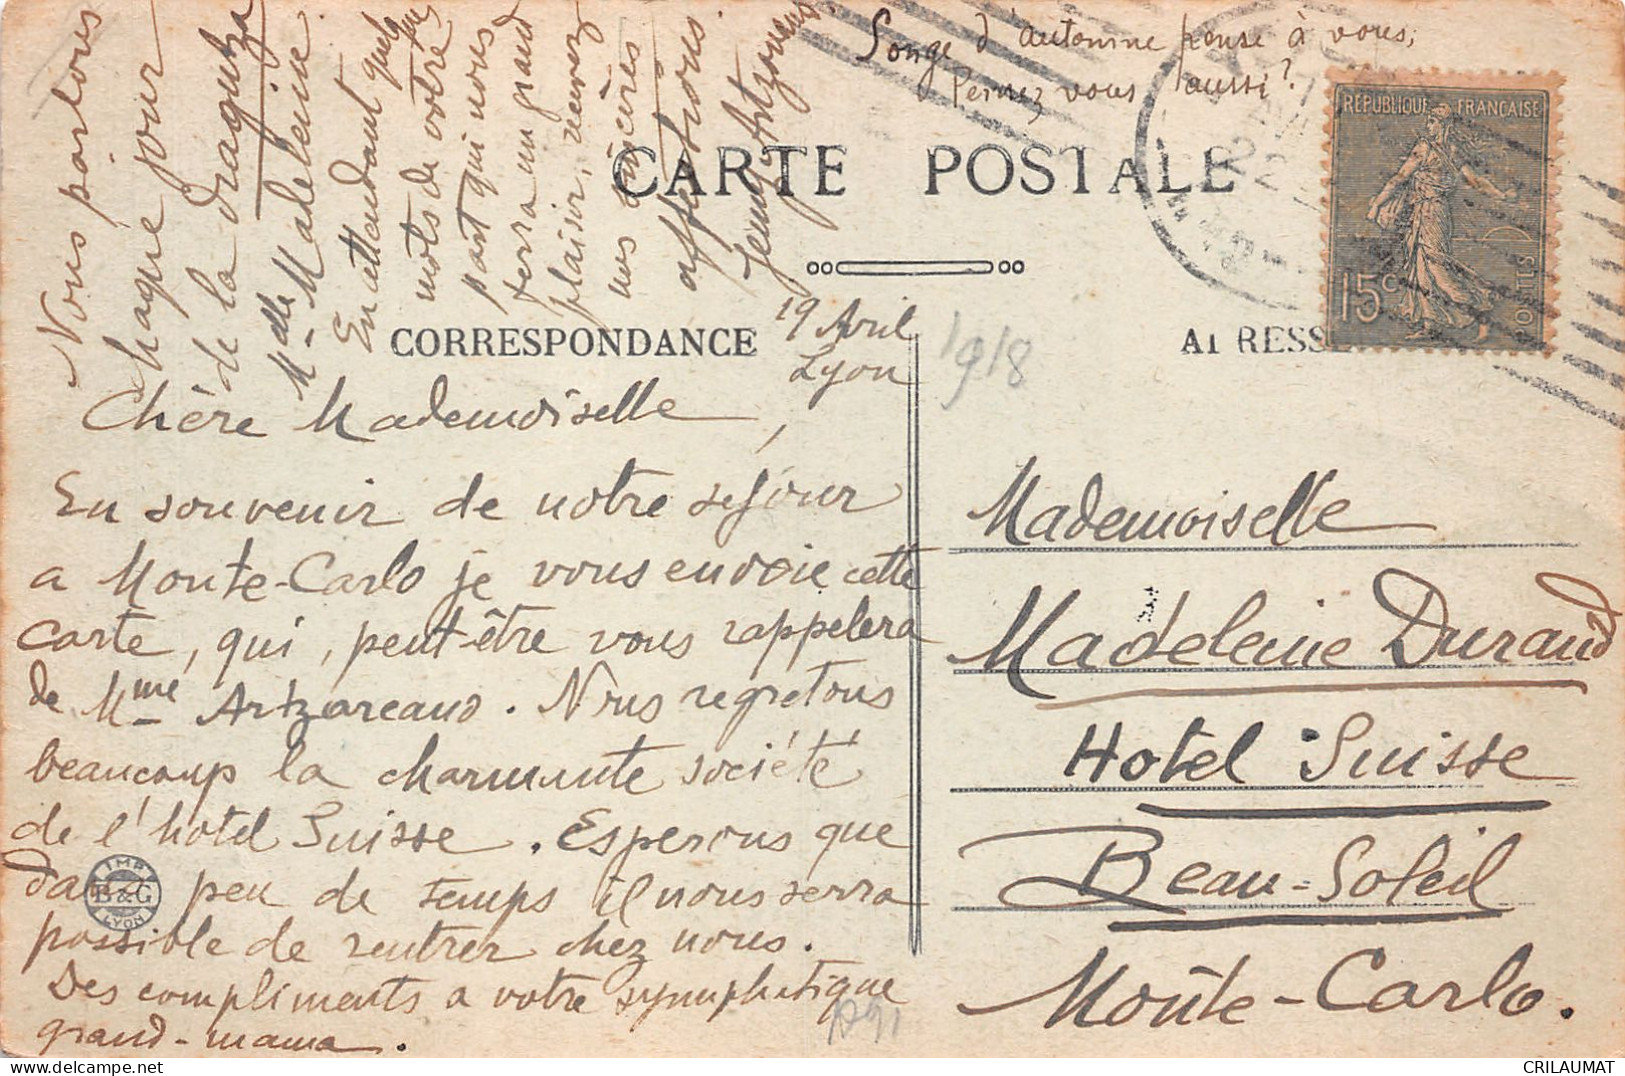 Songe d'automne pense à vous,
Pensez vous aussi?
RÉPUBLIQUE FRANÇAISE
15c
POSTES
CARTE POSTALE
CORRESPONDANCE
19 Avril
Lyon
1918
Chère Mademoiselle,
En souvenir de notre sejour
a Monte-Carlo je vous envoie cette
carte, qui, peut-être vous rappelera
de Mme
Nous regretons
beaucoup la charmante société
de l'hotel Suisse. Esperons que
dans peu de temps il nous serra
possible de rentrer chez nous.
Des compliments a votre symphatique
grand-mama.
Nous parlons
chaque jour
de la
Mdelle Madeleine.
En attendant quelques
mots de votre
part qui nous
ferra un grand
plaisir, recevez
nos sincères
IMP.
B & G
LYON
Mademoiselle
Madeleine Durand
Hotel Suisse
Beau-Soleil
Monte-Carlo.
CRILAUMAT